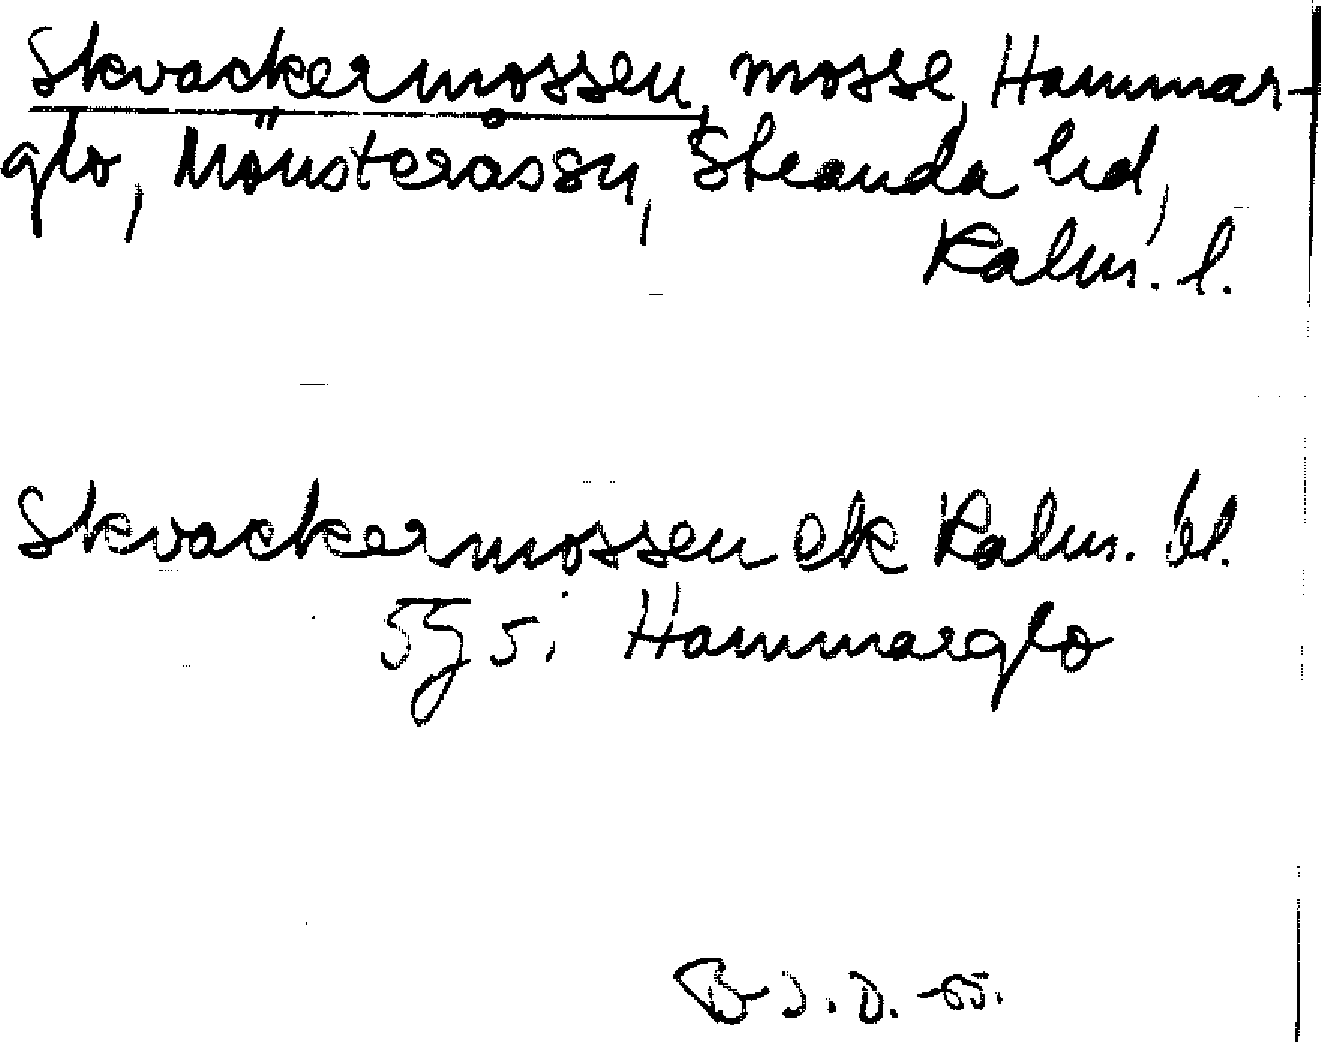 Skvackermossen, mosse, Hammar-
glo, Mönsterås sn, Stranda hd,
Kalm. l.
Skvackermossen ek Kalm. bl.
5g5. i Hammarglo
-55.